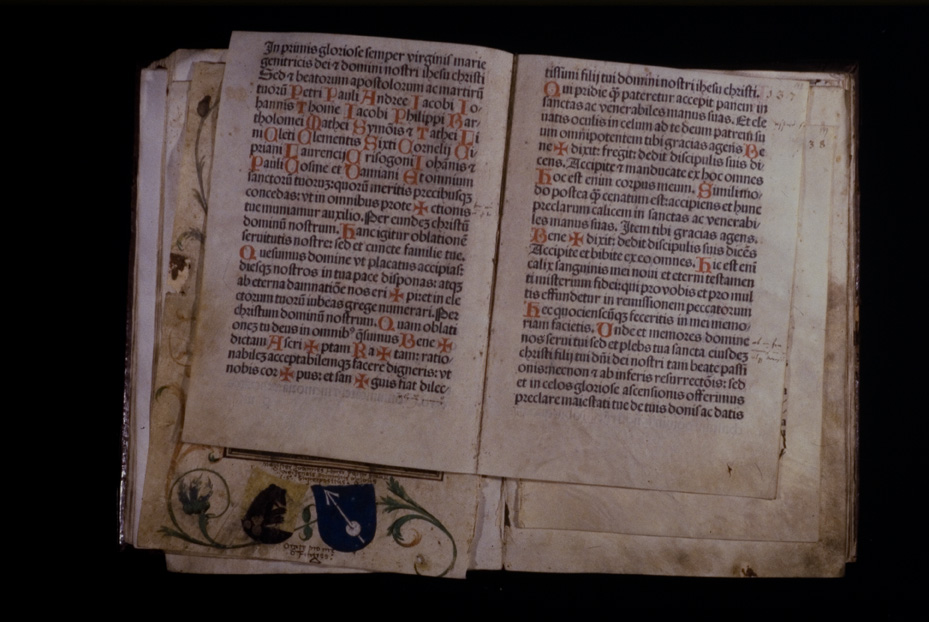 In primis gloriose semper virginis marie
genitricis dei ⁊ domini nostri ihesu christi
Sed ⁊ beatorum apostolorum ac martirū
tuorū Petri Pauli Andree Iacobi Io⸗
hannis Thome Iacobi Philippi Bar⸗
tholomei Mathei Symōis ⁊ Tathei Li
ni Cleti Clementis Sixti Cornelij Ci⸗
priani Laurencij Crisogoni Iohānis ⁊
Pauli Cosme et Damiani Et omnium
sanctorū tuorūꝫquorū meritis precibusqꝫ
concedas: vt in omnibus prote ✠ ctionis
tue muniamur auxilio. Per eundeꝫ christū
dominū nostrum. Hanc igitur oblationē
seruitutis nostre: sed et cuncte familie tue.
Quesumus domine vt placatus accipias:
diesqꝫ nostros in tua pace disponas: atqꝫ
ab eterna damnatiōe nos eri ✠ piret in ele
ctorum tuorū iubeas grege numerari. Per
christum dominū nostrum. Quam oblati
oneꝫ tu deus in omnibꝰ q̄sumus Bene ✠
dictam Ascri ✠ ptam Ra ✠ tam: ratio⸗
nabileꝫ acceptabilemqꝫ facere digneris: vt
nobis cor ✠ pus: et san ✠ guis fiat dilec⸗
tissimi filij tui domini nostri ihesu christi.
Qui pridie q̄ pateretur accepit panem in
sanctas ac venerabiles manus suas. Et ele
uatis oculis in celum ad te deum patrem su
um omnipotentem tibi gracias agens Be
ne ✠ dixit: fregit: dedit discipulis suis di
cens. Accipite ⁊ manducate ex hoc omnes
Hoc est enim corpus meum. Simili mo⸗
do postea q̄ cenatum est: accipiens et hunc
preclarum calicem in sanctas ac venerabi⸗
les manus suas. Item tibi gracias agens.
Bene ✠ dixit: dedit discipulis suis dicēs
Accipite et bibite ex eo omnes. Hic est eni
calix sanguinis mei noui et eterni testamen
ti misterium fidei: qui pro vobis et pro mul
tis effundetur in remissionem peccatorum
Hec quocienscūqꝫ feceritis in mei memo⸗
riam facietis. Unde et memores domine
nos serui tui sed et plebs tua sancta eiusdeꝫ
christi filij tui dn̄i dei nostri tam beate passi
onis: necnon ⁊ ab inferis resurrectōis: sed
et in celos gloriose ascensionis offerimus
preclare maiestati tue de tuis donis ac datis
137
38